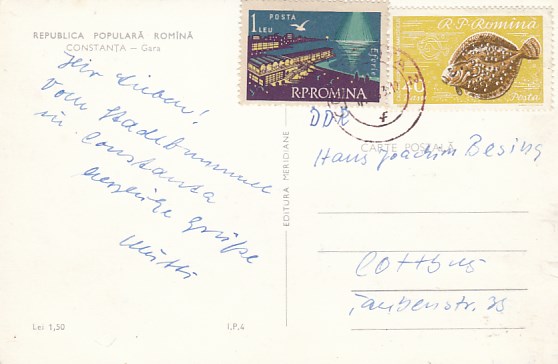 REPUBLICA POPULARĂ ROMÎNĂ
CONSTANȚA — Gara
1 LEU
POSTA
Eforie
R.P.ROMINA
R.P. Romînă
40
Posta
DDR
Ihr Lieben!
Vom Stadtbummel
in Constanta
herzliche Grüße
Mutti
EDITURA MERIDIANE
CARTE POȘTALĂ
Hans Joachim Besing
Cottbus
Taubenstr. 25
Lei 1,50
I.P.4